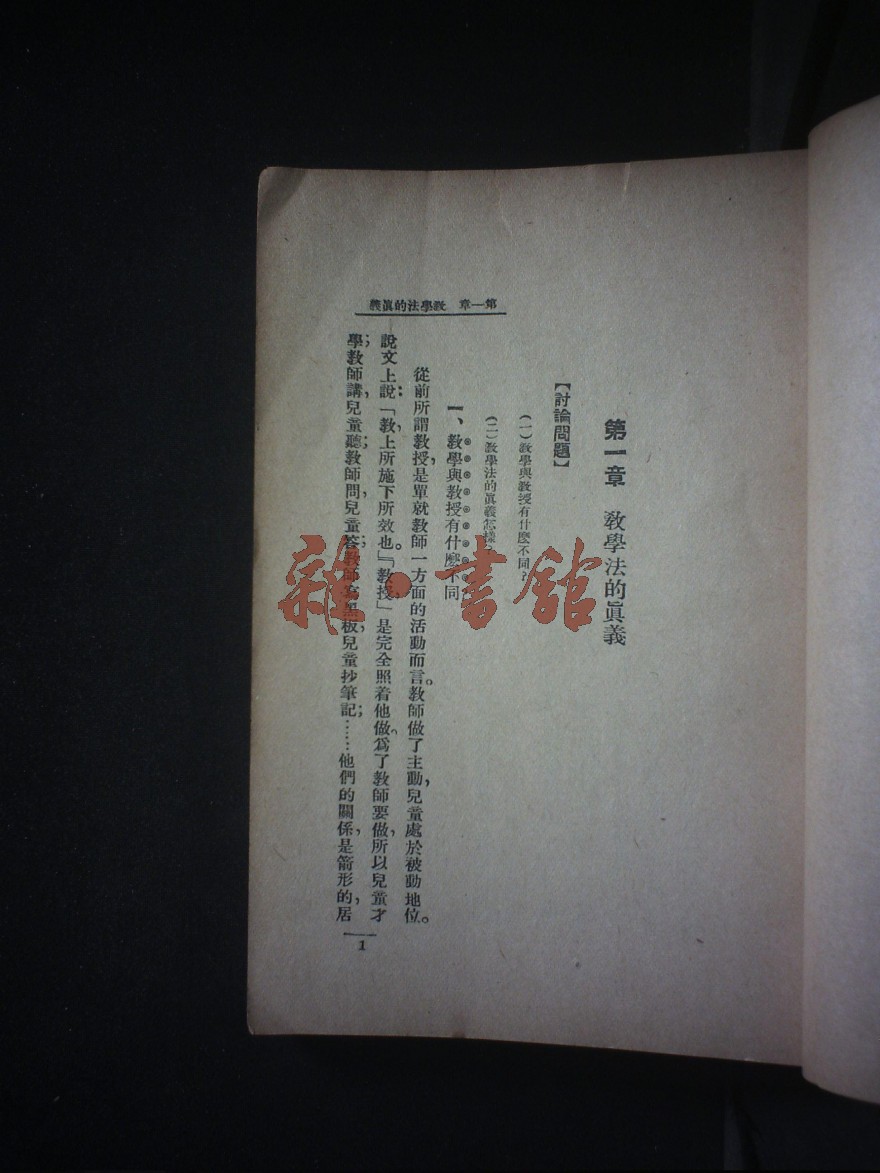 第一章 敎學法的眞義
第一章 敎學法的眞義
【討論問題】
(一)敎學與敎授有什麽不同?
(二)敎學法的眞義怎樣
一、敎學與敎授有什麽不同
從前所謂敎授,是單就敎師一方面的活動而言。敎師做了主動,兒童處於被動地位。
說文上說:「敎,上所施下所效也。」『敎授」是完全照着他做。爲了敎師要做,所以兒童才
學;敎師講,兒童聽;敎師問,兒童答;敎師寫黑板,兒童抄筆記;……他們的關係,是箭形的,居
1
雜·書館